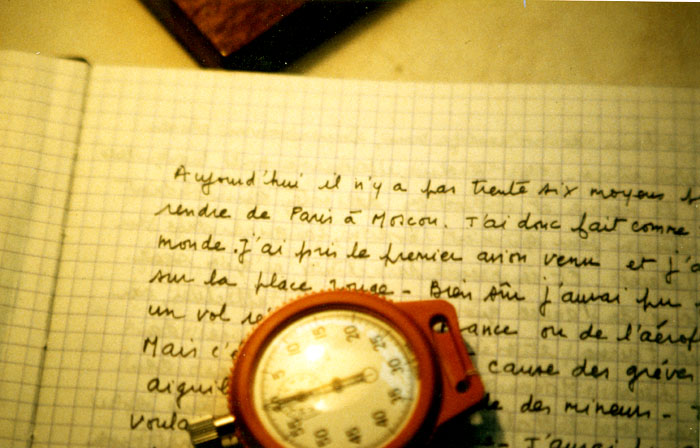 Aujourd'hui il n'y a pas trente six moyens
rendre de Paris à Moscou. J'ai donc fait comme
monde. J'ai pris le premier avion venu et j'a
sur la place rouge - Bien sûr j'aurai pu
un vol ou de l'aérof
Mais c'é cause des grèves
aiguil des mineurs -
voula J'aurai
5 15 20 25 30 35 40 45 50 55